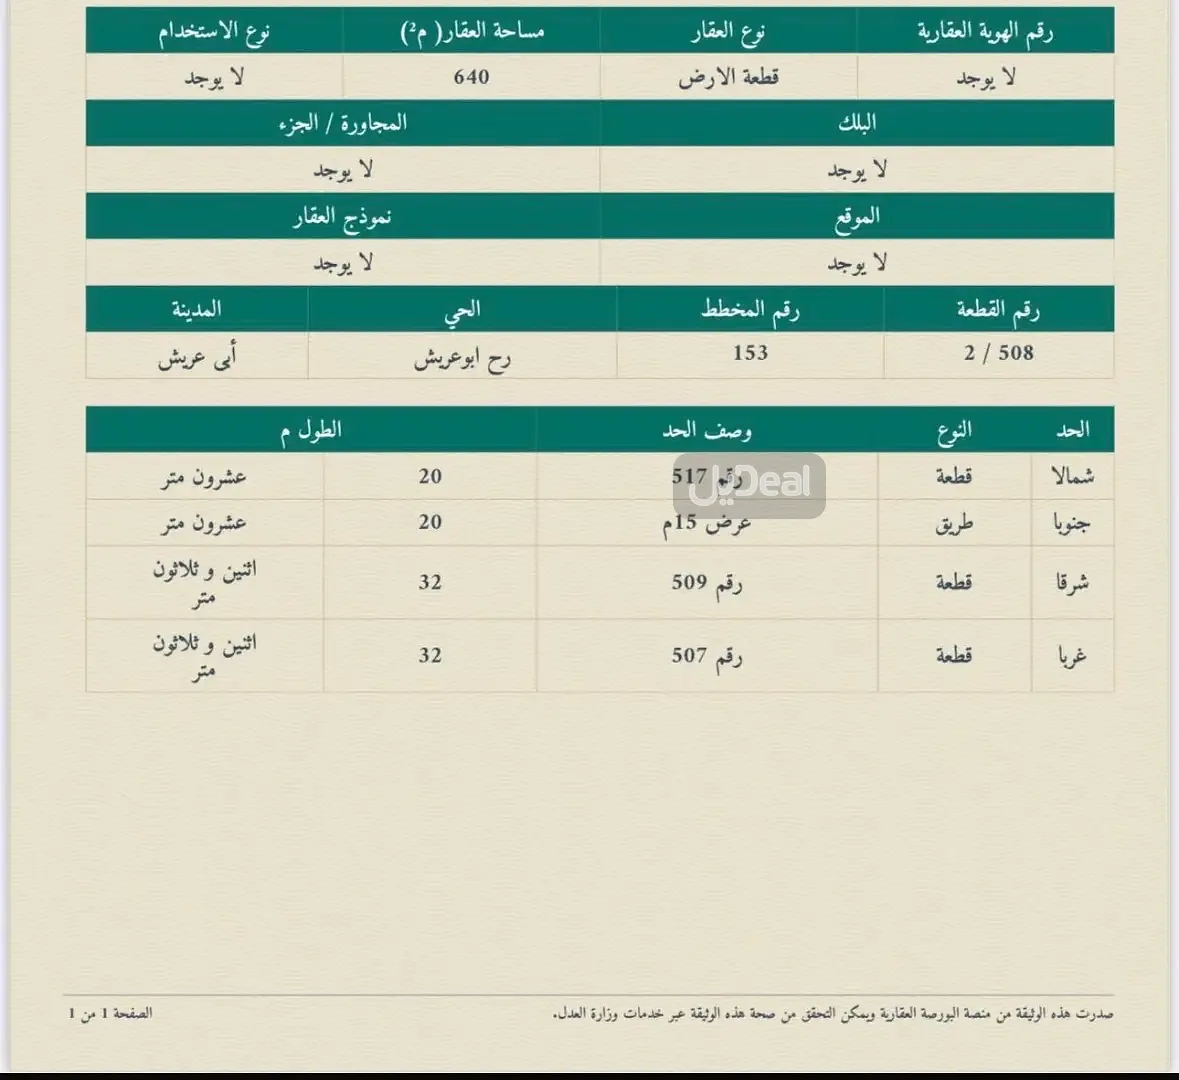 رقم الهوية العقارية نوع العقار مساحة العقار( م²) نوع الاستخدام
لا يوجد قطعة الارض 640 لا يوجد
البلك المجاورة / الجزء
لا يوجد لا يوجد
الموقع نموذج العقار
لا يوجد لا يوجد
رقم القطعة رقم المخطط الحي المدينة
508 / 2 153 رح ابوعريش أبى عريش
الحد النوع وصف الحد الطول م
شمالا قطعة رقم 517 20 عشرون متر
ديل Deal
جنوبا طريق عرض 15م 20 عشرون متر
شرقا قطعة رقم 509 32 اثنين و ثلاثون
متر
غربا قطعة رقم 507 32 اثنين و ثلاثون
متر
صدرت هذه الوثيقة من منصة البورصة العقارية ويمكن التحقق من صحة هذه الوثيقة عبر خدمات وزارة العدل. الصفحة 1 من 1